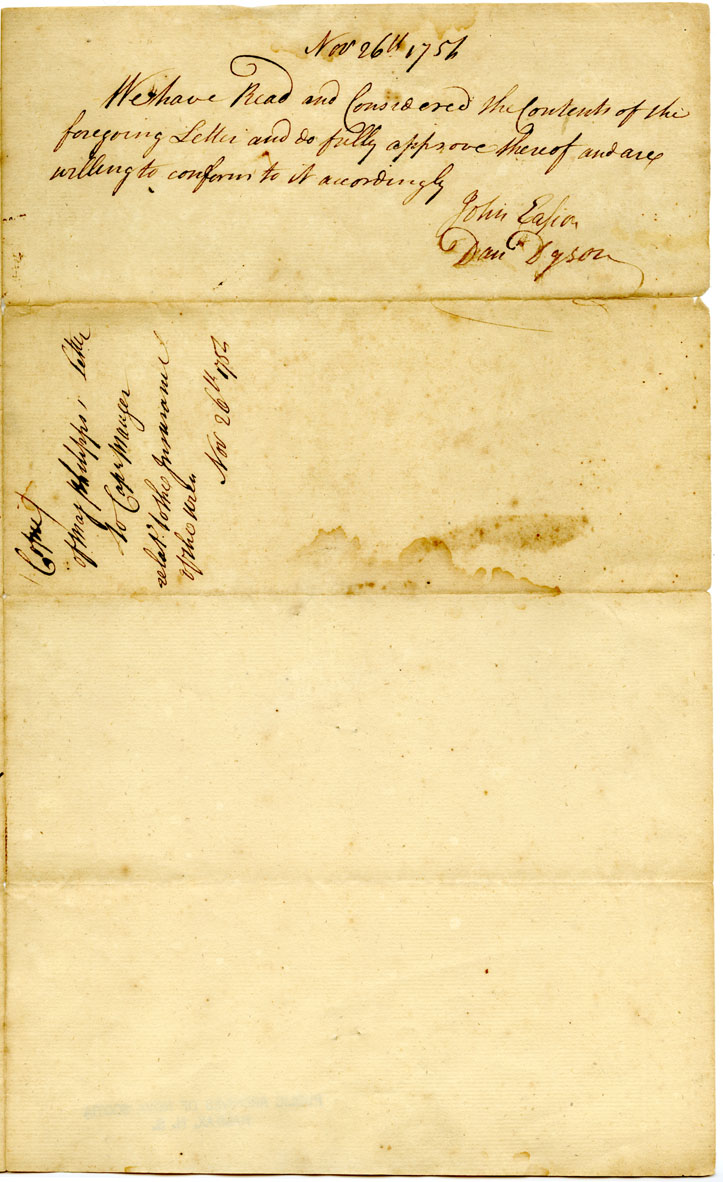 Nov 26th 175
We have Read and Considered the Contents of the
foregoing Letter and do fully approve thereof and are
willing to conform to it accordingly
John Easson
Danl Dyson
Copie
of Maj Philipps's Letter
to Capt Mauger
relat. to the Insurance
of the
Nov 26th 175